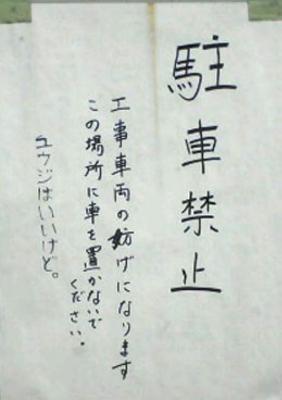 駐車禁止
工事車両の妨げになります
この場所に車を置かないで
ください。
ユウジはいいけど。